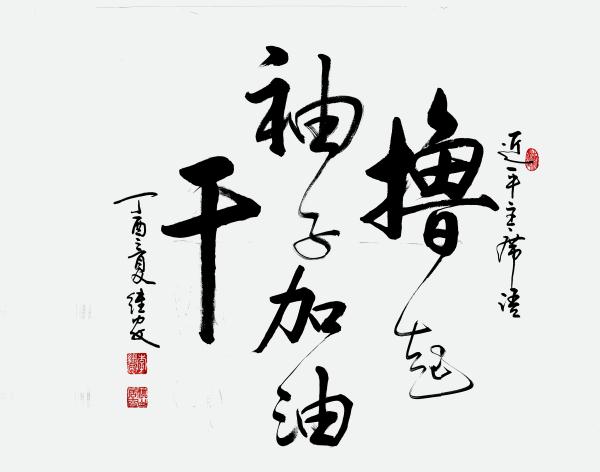 近平主席语
撸起
袖子加油
干
丁酉之夏